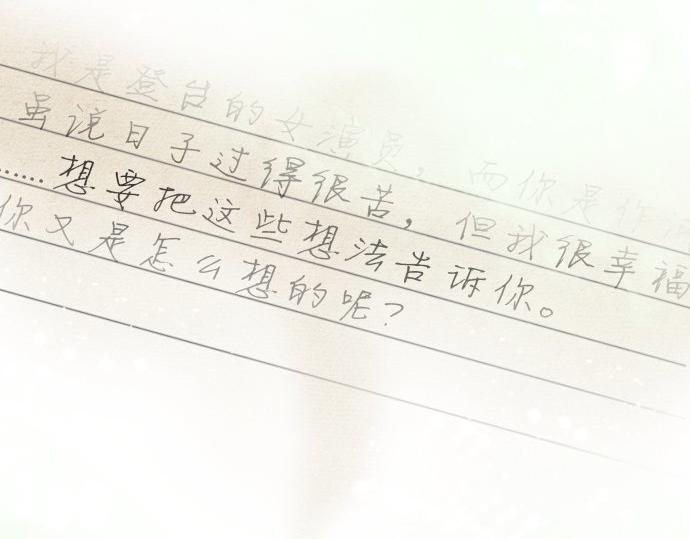 我是登台的女演员，而你是作
虽说日子过得很苦，但我很幸福
……想要把这些想法告诉你。
你又是怎么想的呢？